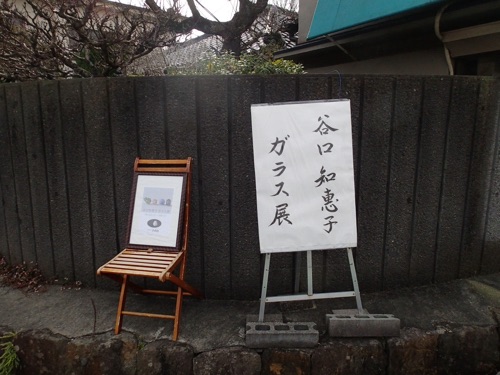 谷口 知恵子
ガラス展